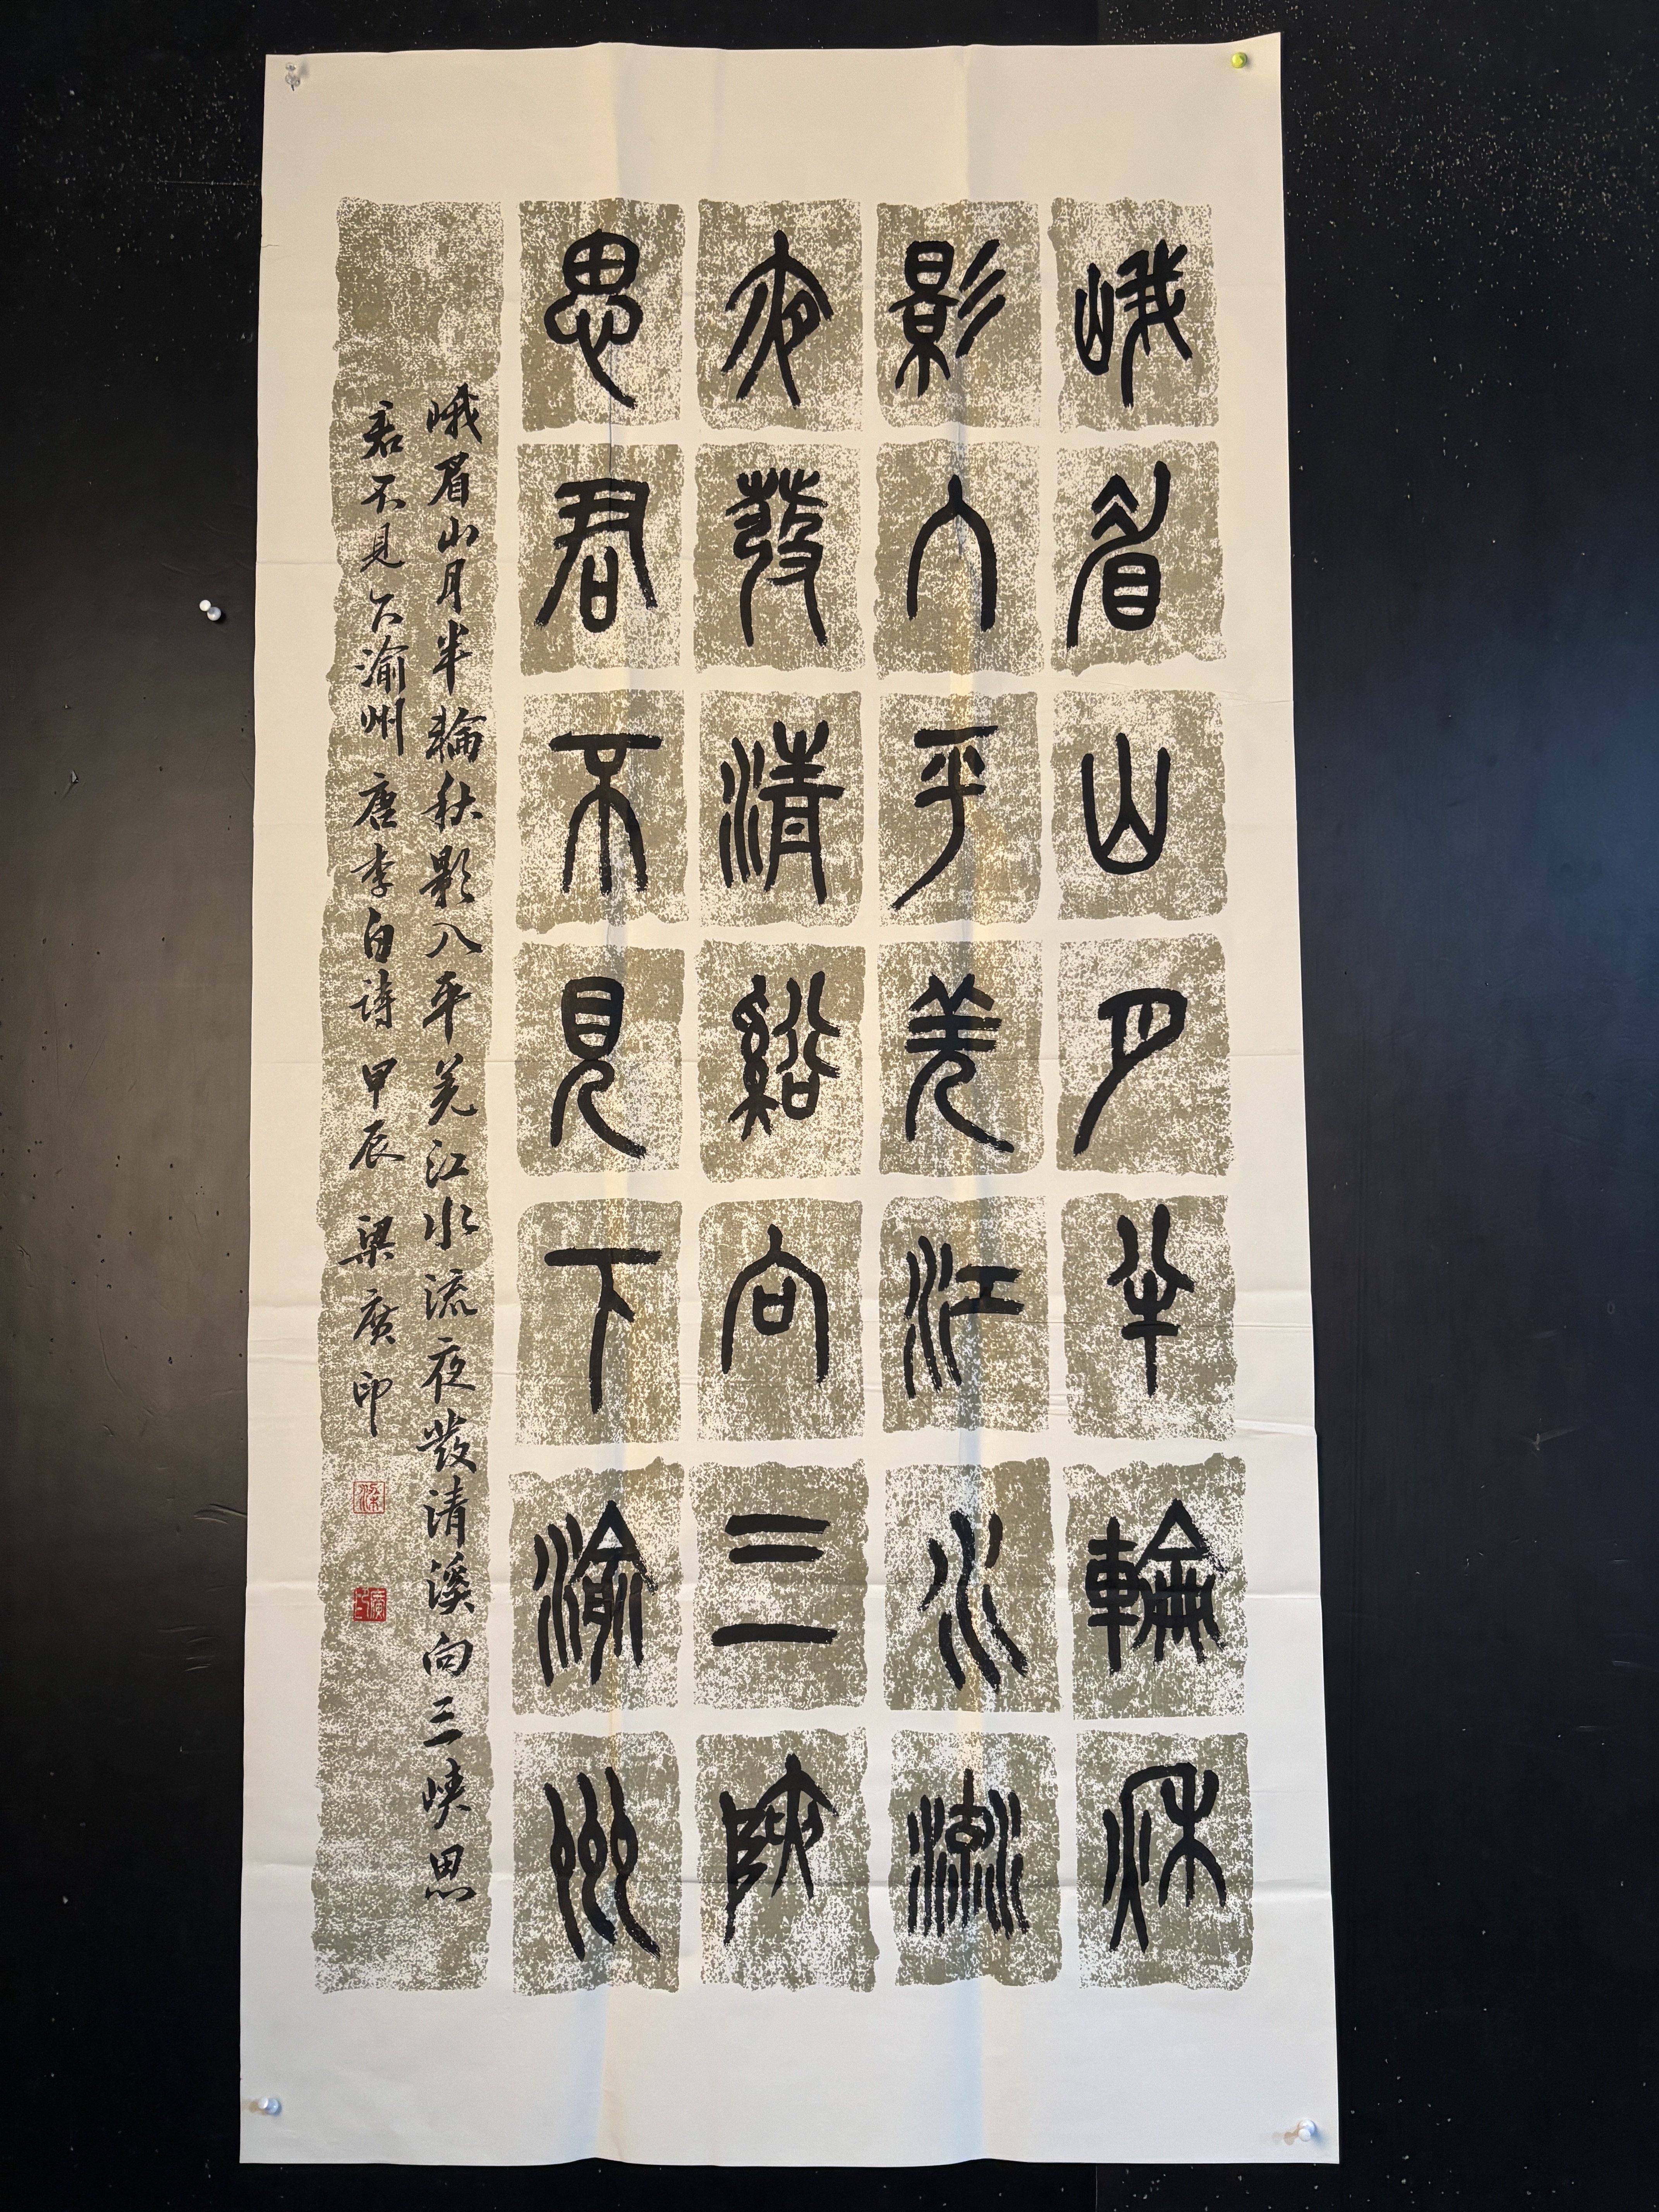 峨眉山月半輪秋
影入平羌江水流
夜發清谿向三峽
思君不見下渝州
峨眉山月半輪秋影入平羌江水流夜發清溪向三峽思
君不見下渝州 唐李白詩 甲辰 梁廣印
梁
廣印